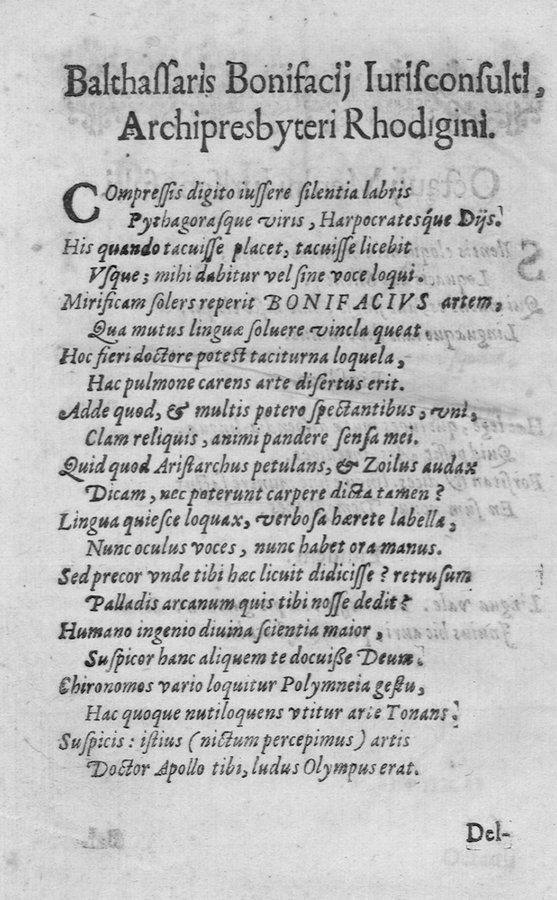 Balthaſſaris Bonifacij Iuriſconſulti,
Archipresbyteri Rhodigini.
COmpreſſis digito iuſſere ſilentia labris
Pythagoraſque viris, Harpocrateſq́ue Dijs.
His quando tacuiſſe placet, tacuiſſe licebit
Vſque; mihi dabitur vel ſine voce loqui.
Mirificam ſolers reperit BONIFACIVS artem,
Qua mutus linguæ ſoluere vincla queat.
Hoc fieri doctore poteſt taciturna loquela,
Hac pulmone carens arte diſertus erit.
Adde quod, & multis potero ſpectantibus, vni,
Clam reliquis, animi pandere ſenſa mei.
Quid quod Ariſtarchus petulans, & Zoilus audax
Dicam, nec poterunt carpere dicta tamen?
Lingua quieſce loquax, verboſa hærete labella,
Nunc oculus voces, nunc habet ora manus.
Sed precor vnde tibi hæc licuit didiciſſe? retruſum
Palladis arcanum quis tibi noſſe dedit?
Humano ingenio diuina ſcientia maior,
Suſpicor hanc aliquem te docuiße Deum.
Chironomos vario loquitur Polymneia geſtu,
Hac quoque nutiloquens vtitur arte Tonans.
Suſpicis: iſtius (nictum percepimus) artis
Doctor Apollo tibi, ludus Olympus erat.
Del-